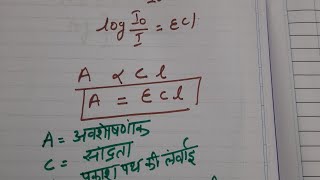 log I₀/I = εcl
A ∝ c l
A = ε c l
A = अवशोषणांक
C = सांद्रता
प्रकाश पथ की लंबाई